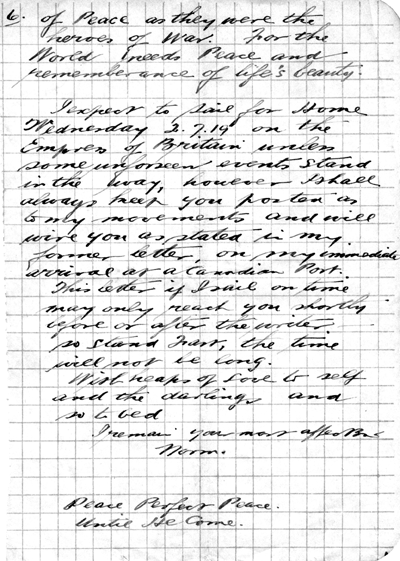 6. of Peace as they were the
heroes of War. For the
World needs Peace and
rememberance of life's beauty.
I expect to sail for Home
Wednesday 2.7.19 on the
Empress of Britain unless
some unforseen events stand
in the way, however I shall
always keep you posted as
to my movements and will
wire you as stated in my
former letter, on my immediate
arrival at a Canadian Port.
This letter if I sail on time
may only reach you shortly
before or after the writer
so stand fast, the time
will not be long.
With heaps of Love to self
and the darlings and
so to bed
I remain your most affec
Norm.
Peace Perfect Peace.
Until He Come.